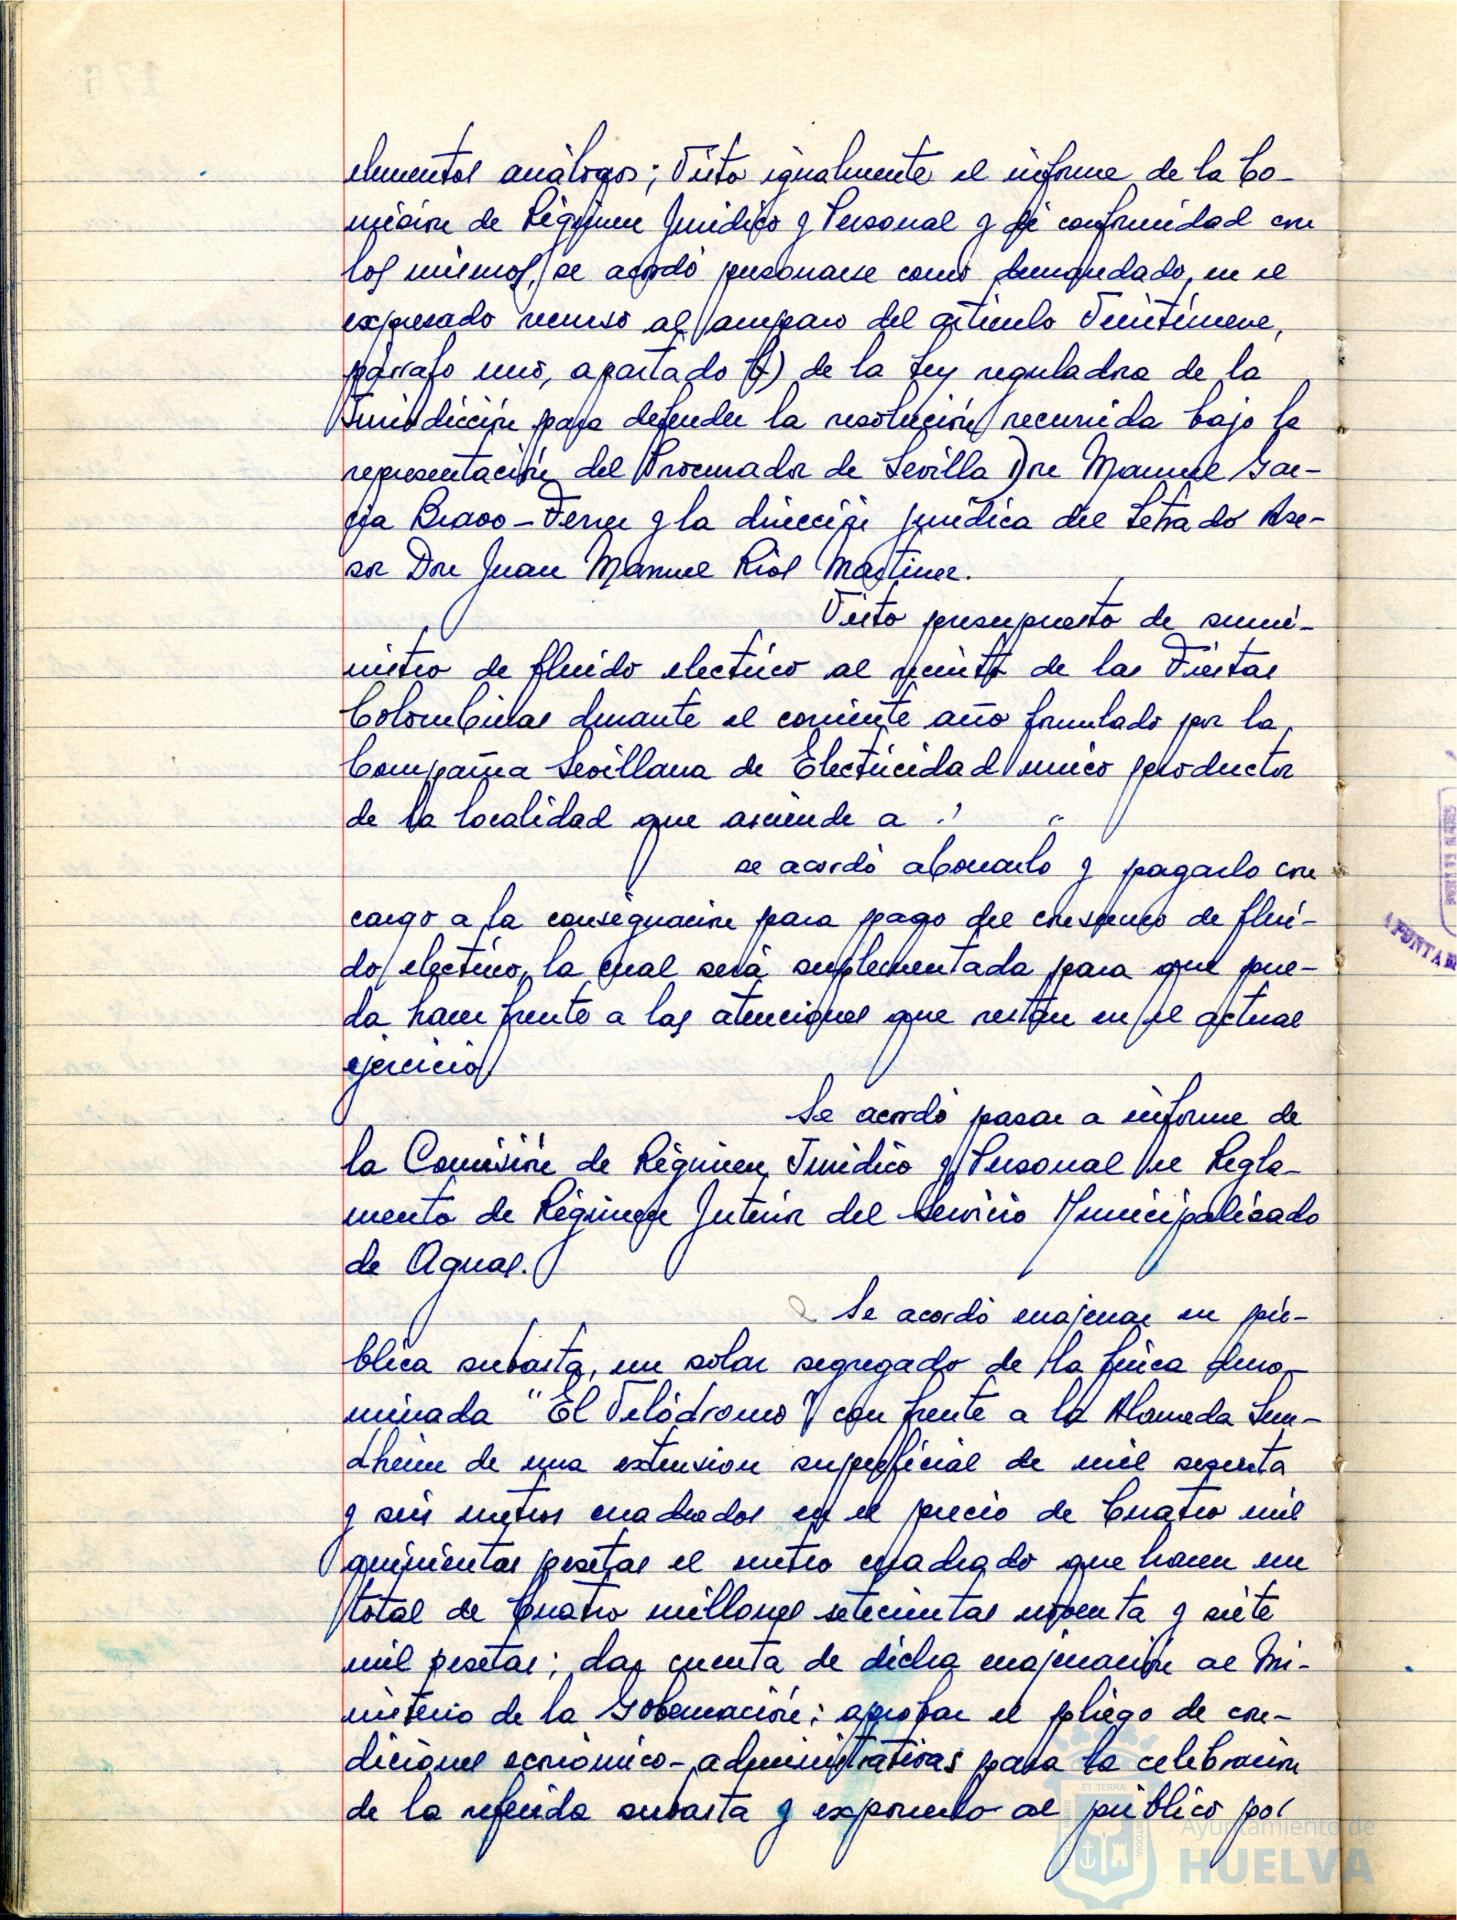 elementos análogos; Visto igualmente el informe de la Co-
misión de Régimen Jurídico y Personal y de conformidad con
los mismos, se acordó personarse como demandado, en el
expresado recurso al amparo del artículo Veintinueve,
párrafo uno, apartado b) de la Ley reguladora de la
Jurisdicción para defender la resolución recurrida bajo la
representación del Procurador de Sevilla Don Manuel Gar-
cia Bravo-Ferrer y la dirección jurídica del Letrado Ase-
sor Don Juan Manuel Rios Martinez.
Visto presupuesto de sumi-
nistro de fluido electrico al recinto de las Fiestas
Colombinas durante el corriente año formulado por la
Compañia Sevillana de Electricidad unico productor
de la localidad que asciende a
se acordó abonarlo y pagarlo con
cargo a la consignación para pago del consumo de flui-
do electrico, la cual será suplementada para que pue-
da hacer frente a las atenciones que restan en el actual
ejercicio
Se acordó pasar a informe de
la Comisión de Régimen Juridico y Personal el Regla-
mento de Régimen Interior del Servicio Municipalizado
de Aguas.
Se acordó enajenar en pú-
blica subasta, un solar segregado de la finca deno-
minada "El Velódromo" con frente a la Alameda Sun-
dheim de una extension superficial de mil sesenta
y seis metros cuadrados en el precio de Cuatro mil
quinientas pesetas el metro cuadrado que hacen un
total de Cuatro millones setecientas noventa y siete
mil pesetas; dar cuenta de dicha enajenación al Mi-
nisterio de la Gobernación; aprobar el pliego de con-
diciones económico-administrativas para la celebración
de la referida subasta y exponerlo al público por
Ayuntamiento de
HUELVA